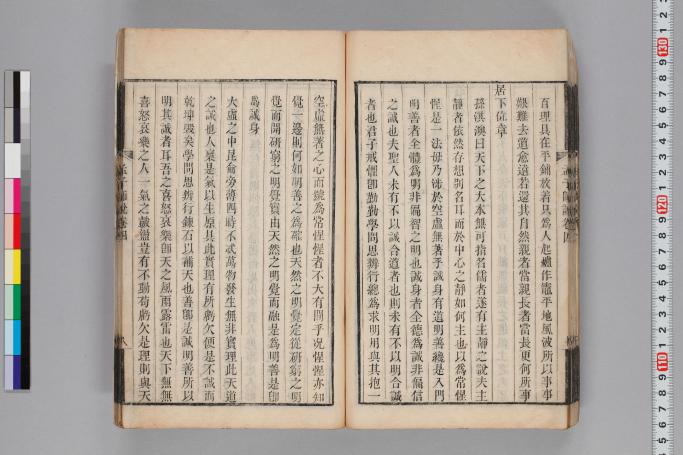 百理具在平鋪放著只爲人起爐作竈平地風波所以事事
艱難去道愈遠若還其自然親者當親長者當長更何所事
居下位章
孫淇澳曰天下之大本無可指名儒者遂有主靜之說夫主
靜者依然存想別名耳而於中心之靜如何主也以爲常惺
惺是一法毋乃涉於空虛無著乎誠身有道明善纔是入門
明善者全體爲明非偏智之明也誠身者全德爲誠非偏信
之誠也夫聖人未有不以誠合道者也則未有不以明合誠
者也君子戒懼卽勤勤學問思辨行總爲求明用與其抱一
空虛無著之心而繞爲常惺惺者不大有間乎況惺惺亦知
覺一邊則何如明善之爲確也天然之明覺定從研窮之明
覺而開研窮之明覺實由天然之明覺而融是爲明善是卽
爲誠身
大虛之中昆侖旁薄四時不忒萬物發生無非實理此天道
之誠也人稟是氣以生原具此實理有所虧欠便是不誠而
乾坤毀矣學問思辨行鍊石以補天也善卽是誠明善所以
明其誠者耳吾之喜怒哀樂卽天之風雨露雷也天下無無
喜怒哀樂之人一氣之鼓盪豈有不動苟虧欠是理則與天